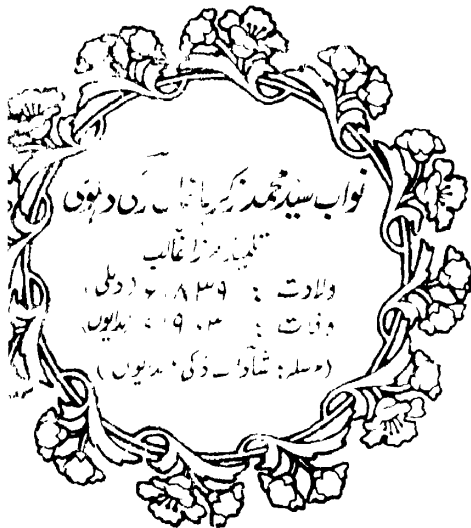 نواب سید محمد زکریا خاں زکی دہلوی
تلمیذ مرزا غالب
ولادت : ۱۸۳۹ء (دہلی)
وفات : ۱۹۰۳ء بدایوں
(مرسلہ : شاداب ذکی بدایوں)